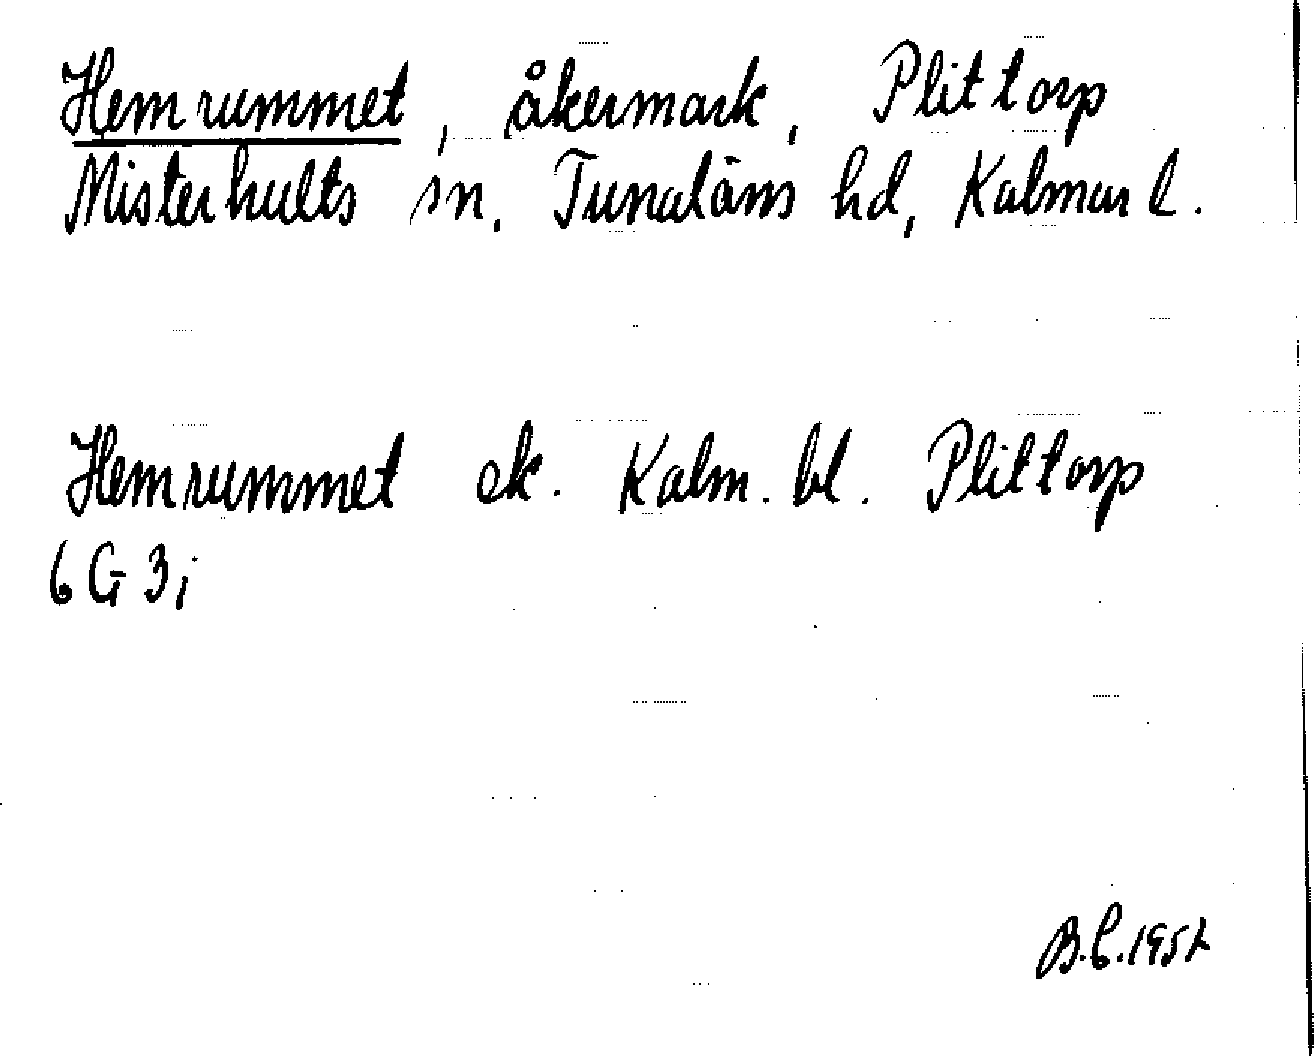 Hemrummet, åkermark, Plittorp
Misterhults sn, Tunaläns hd, Kalmar l.
Hemrummet ek. Kalm. bl. Plittorp
6 G 3 i
B.C. 1952